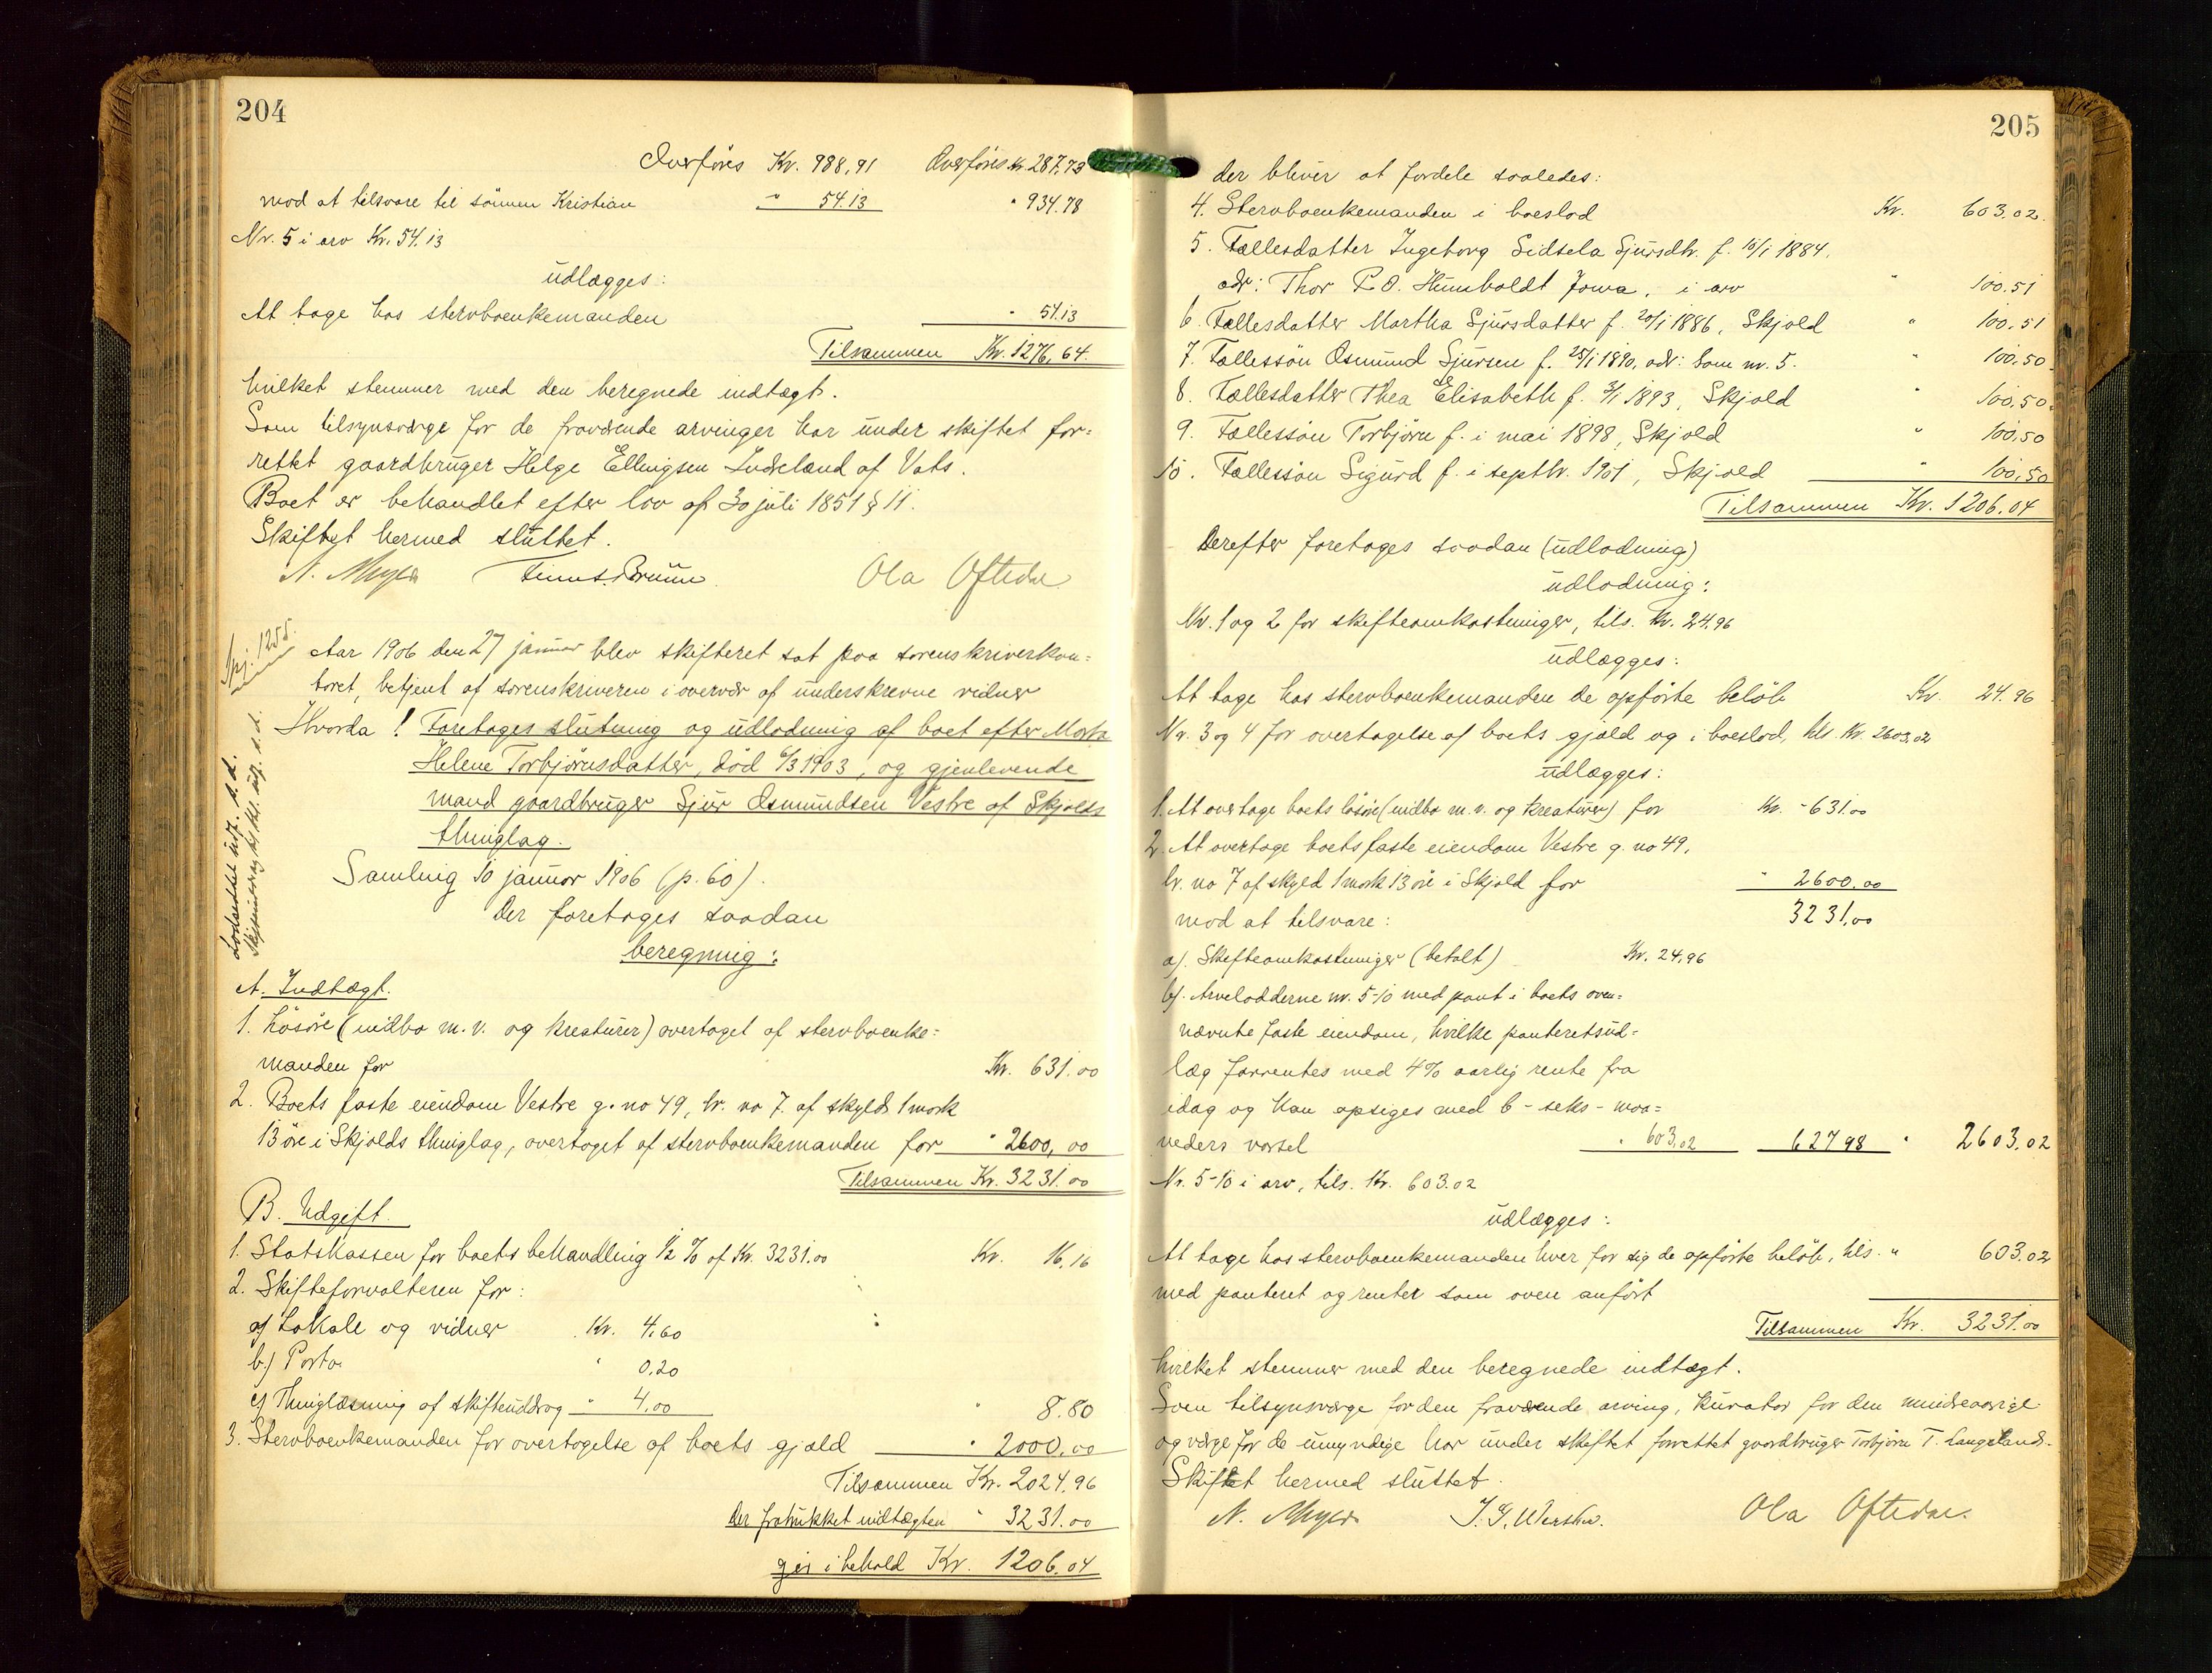 204
Overføres Kr. 988,91 Overføres Kr. 287,73
mod at tilsvare til sønnen Kristian " 54.13 " 934.78
Nr. 5 i arv Kr. 54.13
udlægges:
At tage hos stervboenkemanden " 54.13
Tilsammen Kr. 1276,64.
hvilket stemmer med den beregnede indtægt.
Som tilsynsværge for de fraværende arvinger har under skiftet for=
rettet gaardbruger Helge Ellingsen Indreland af Vats.
Boet er behandlet efter lov af 30 juli 1851 § 11.
Skiftet hermed sluttet.
N. Meyer Finn S. Bruun Ola Oftedal
Spj. 1255.
Aar 1906 den 27 januar blev skifteret sat paa sorenskriverkon=
toret, betjent af sorenskriveren i overvær af underskrevne vidner
Hvorda! Foretages slutning og udlodning af boet efter Marta
Helene Torbjørnsdatter, død 6/3 1903, og gjenlevende
mand gaardbruger Sjur Osmundsen Vestre af Skjolds
thinglag.
Samling 10 januar 1906 (p. 60).
Der foretages saadan
beregning:
A. Indtægt.
1. Løsøre (indbo m. v. og kreaturer) overtaget af stervboenke=
manden for Kr. 631.00
2. Boets faste eiendom Vestre g. no 49, br. no 7 af skyld 1 mark
13 øre i Skjolds thinglag, overtaget af stervboenkemanden for " 2600,00
Tilsammen Kr. 3231.00
B. Udgift.
1. Statskassen for boets behandling 1/2 % af Kr. 3231.00 Kr. 16,16
2. Skifteforvalteren for:
a) Lokale og vidner Kr. 4,60
b) Porto " 0.20
c) Thinglæsning af skifteuddrag " 4,00 " 8.80
3. Stervboenkemanden for overtagelse af boets gjæld " 2000,00
Tilsammen Kr. 2024,96
Der fratrukket indtægten " 3231.00
gir i behold Kr. 1206,04
205
der bliver at fordele saaledes:
4. Stervboenkemanden i boeslod Kr. 603.02.
5. Fællesdatter Ingeborg Sidsela Sjursdtr. f. 10/1 1884,
adr: Thor P.O. Humboldt Jowa, i arv " 100.51
6. Fællesdatter Martha Sjursdatter f. 20/1 1886, Skjold " 100.51
7. Fællessøn Osmund Sjursen f. 25/1 1890, adr: som nr. 5. " 100.50
8. Fællesdatter Thea Elisabeth f. 3/1 1893, Skjold " 100.50.
9. Fællessøn Torbjørn f. i mai 1898, Skjold " 100.50
10. Fællessøn Sigurd f. i septbr. 1901, Skjold " 100.50
Tilsammen Kr. 1206.04
Derefter foretages saadan (udlodning)
udlodning:
Nr. 1 og 2 for skifteomkostninger, tils. Kr. 24.96
udlægges:
At tage hos stervboenkemanden de opførte beløb Kr. 24.96
Nr. 3 og 4 for overtagelse af boets gjæld og i boeslod, tils. Kr. 2603,02
udlægges:
1. At overtage boets løsøre (indbo m. v. og kreaturer) for Kr. 631.00
2. At overtage boets faste eiendom Vestre g. no 49,
br. no 7 af skyld 1 mark 13 øre i Skjold for " 2600.00
mod at tilsvare: 3231,00
a). Skifteomkostninger (betalt) Kr. 24,96
b). Arvelodderne nr. 5-10 med pant i boets oven=
nævnte faste eiendom, hvilke panteretsud=
læg forrentes med 4 % aarlig rente fra
idag og kan opsiges med 6 - seks - maa=
neders varsel " 603.02 627 98 " 2603.02
Nr. 5-10 i arv, tils. Kr. 603.02
udlægges:
At tage hos stervboenkemanden hver for sig de opførte beløb, tils. " 603.02
med panteret og renter som oven anført
Tilsammen Kr. 3231.00
hvilket stemmer med den beregnede indtægt.
Som tilsynsværge for den fraværende arving, kurator for den mindreaarige
og værge for de umyndige har under skiftet forrettet gaardbruger Torbjørn T. Langeland.
Skiftet hermed sluttet.
N. Meyer Ola Oftedal.